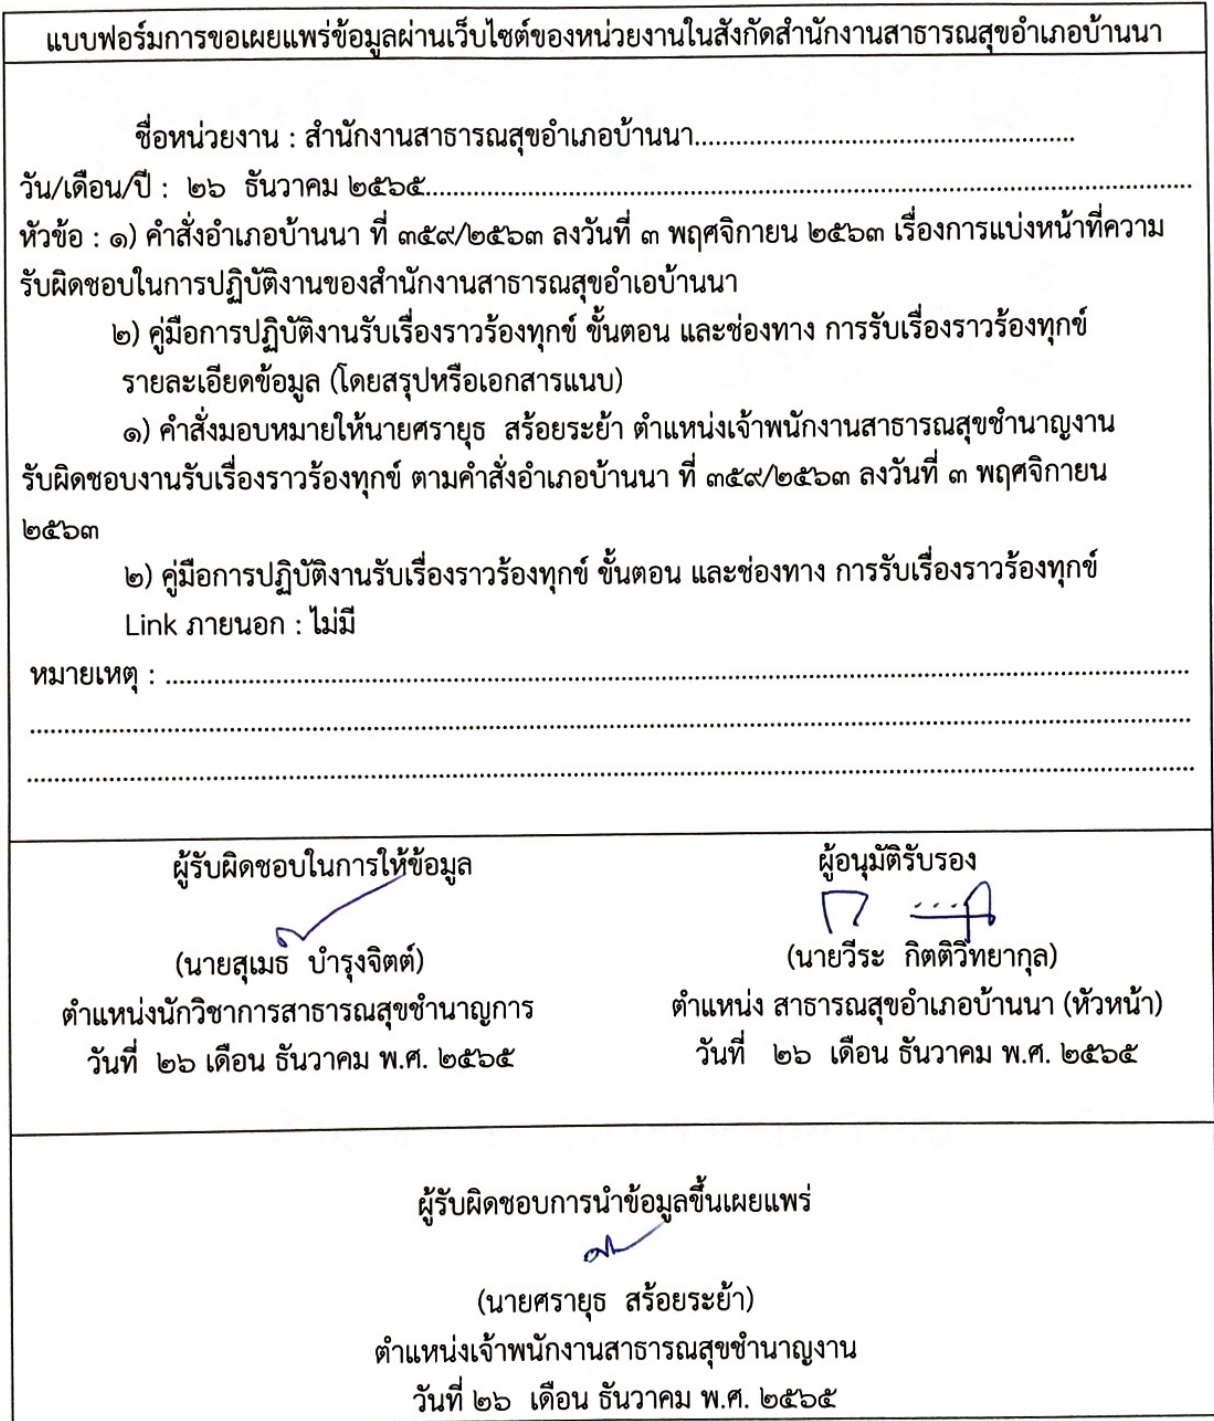 แบบฟอร์มการขอเผยแพร่ข้อมูลผ่านเว็บไซต์ของหน่วยงานในสังกัดสำนักงานสาธารณสุขอำเภอบ้านนา
ชื่อหน่วยงาน : สำนักงานสาธารณสุขอำเภอบ้านนา........................................................
วัน/เดือน/ปี : ๒๖ ธันวาคม ๒๕๖๕................................................................................................................
หัวข้อ : ๑) คำสั่งอำเภอบ้านนา ที่ ๓๕๙/๒๕๖๓ ลงวันที่ ๓ พฤศจิกายน ๒๕๖๓ เรื่องการแบ่งหน้าที่ความ
รับผิดชอบในการปฏิบัติงานของสำนักงานสาธารณสุขอำเอบ้านนา
๒) คู่มือการปฏิบัติงานรับเรื่องราวร้องทุกข์ ขั้นตอน และช่องทาง การรับเรื่องราวร้องทุกข์
รายละเอียดข้อมูล (โดยสรุปหรือเอกสารแนบ)
๑) คำสั่งมอบหมายให้นายศรายุธ สร้อยระย้า ตำแหน่งเจ้าพนักงานสาธารณสุขชำนาญงาน
รับผิดชอบงานรับเรื่องราวร้องทุกข์ ตามคำสั่งอำเภอบ้านนา ที่ ๓๕๙/๒๕๖๓ ลงวันที่ ๓ พฤศจิกายน
๒๕๖๓
๒) คู่มือการปฏิบัติงานรับเรื่องราวร้องทุกข์ ขั้นตอน และช่องทาง การรับเรื่องราวร้องทุกข์
Link ภายนอก : ไม่มี
หมายเหตุ : ......................................................................................................................................................
..........................................................................................................................................................................
..........................................................................................................................................................................
ผู้รับผิดชอบในการให้ข้อมูล ผู้อนุมัติรับรอง
(นายสุเมธ บำรุงจิตต์) (นายวีระ กิตติวิทยากุล)
ตำแหน่งนักวิชาการสาธารณสุขชำนาญการ ตำแหน่ง สาธารณสุขอำเภอบ้านนา (หัวหน้า)
วันที่ ๒๖ เดือน ธันวาคม พ.ศ. ๒๕๖๕ วันที่ ๒๖ เดือน ธันวาคม พ.ศ. ๒๕๖๕
ผู้รับผิดชอบการนำข้อมูลขึ้นเผยแพร่
(นายศรายุธ สร้อยระย้า)
ตำแหน่งเจ้าพนักงานสาธารณสุขชำนาญงาน
วันที่ ๒๖ เดือน ธันวาคม พ.ศ. ๒๕๖๕